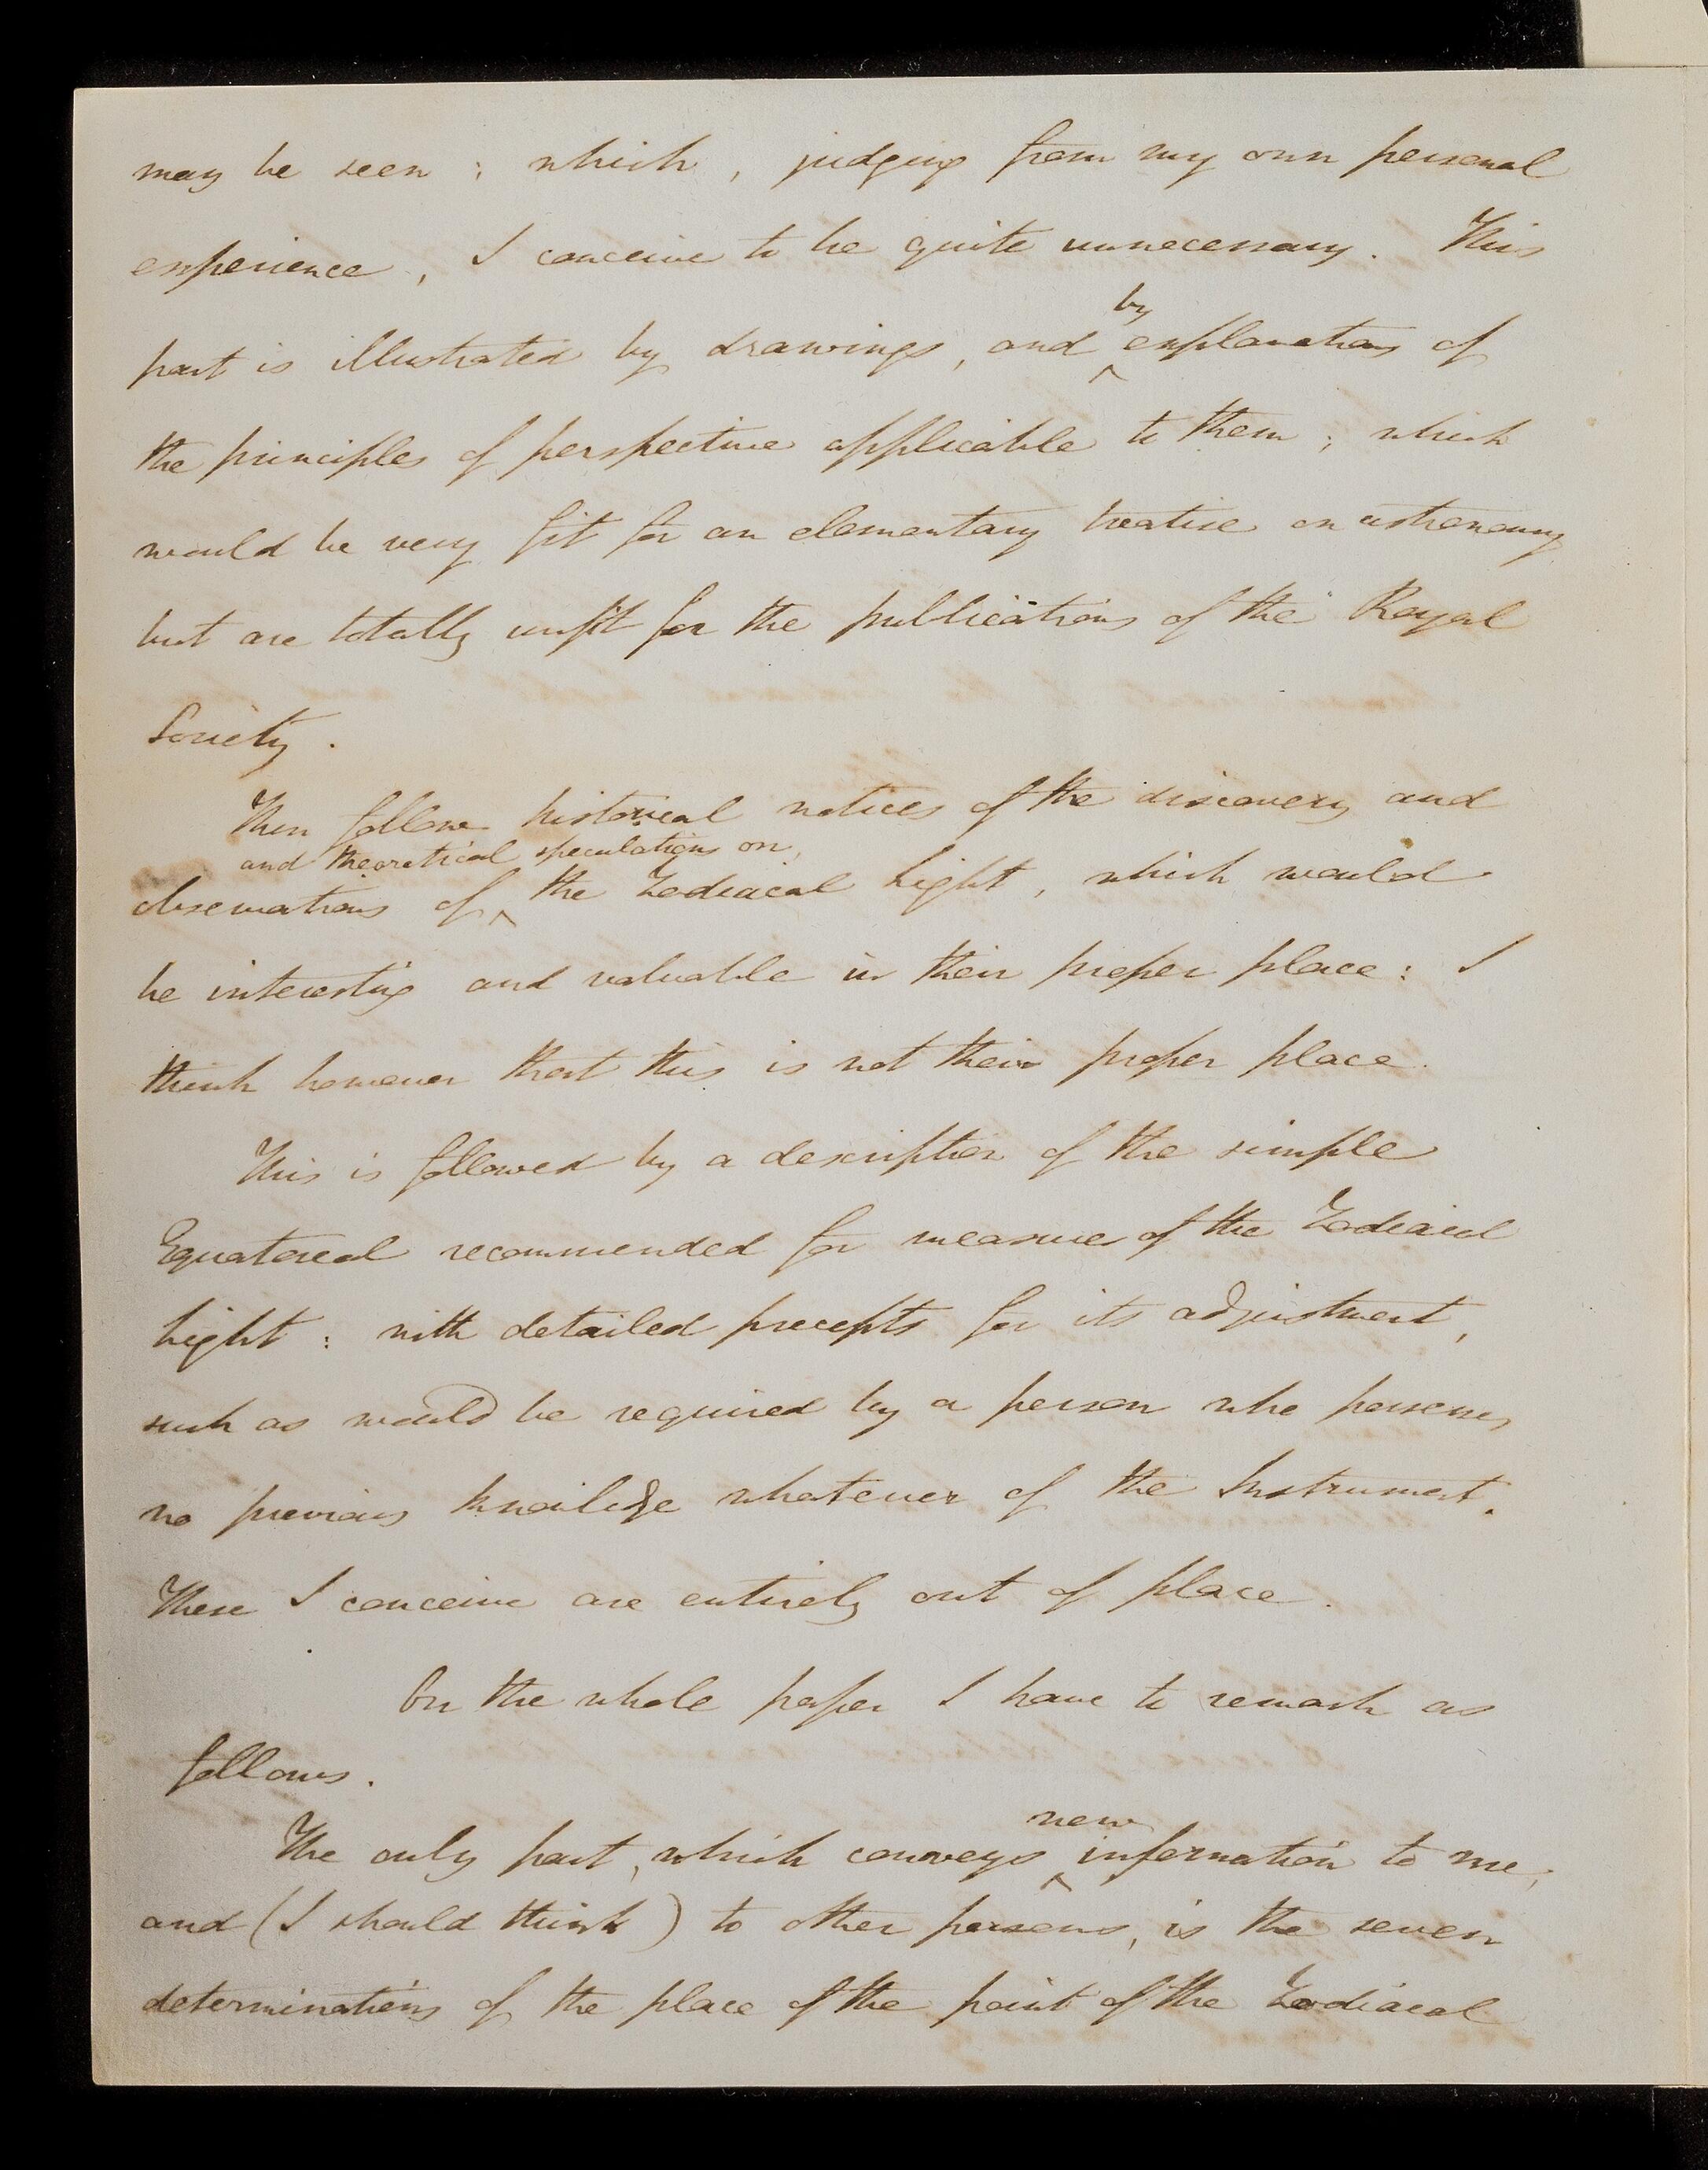 may be seen ; which , judging from my own personal
experience , I conceive to be quite unnecessary . This
by
part is illustrated by drawings , and ^ explanations of
the principles of perspective applicable to them ; which
would be very fit for an elementary treatise on astronomy
but are totally unfit for the publications of the Royal
Society .
Then follow historical notices of the discovery and
and theoretical speculations on,
observations of ^ the Zodiacal Light , which would
be interesting and valuable in their proper place : I
think however that this is not their proper place .
This is followed by a description of the simple
Equatoreal recommended for measures of the Zodiacal
Light : with detailed precepts for its adjustment ,
such as would be required by a person who possesses
no previous knowledge whatever of the Instrument .
These I conceive are entirely out of place .
On the whole paper I have to remark as
follows .
new
The only part , which conveys ^ information to me ,
and ( I should think ) to other persons , is the seven
determinations of the place of the point of the Zodiacal